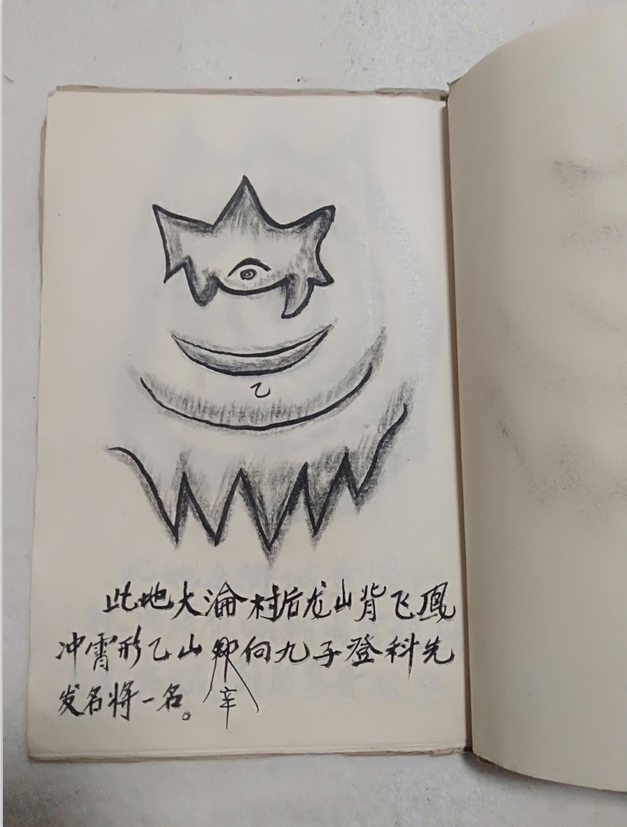 乙
此地大淪村后龙山背飞凤
冲霄形乙山卯向九子登科先
发名将一名。
辛